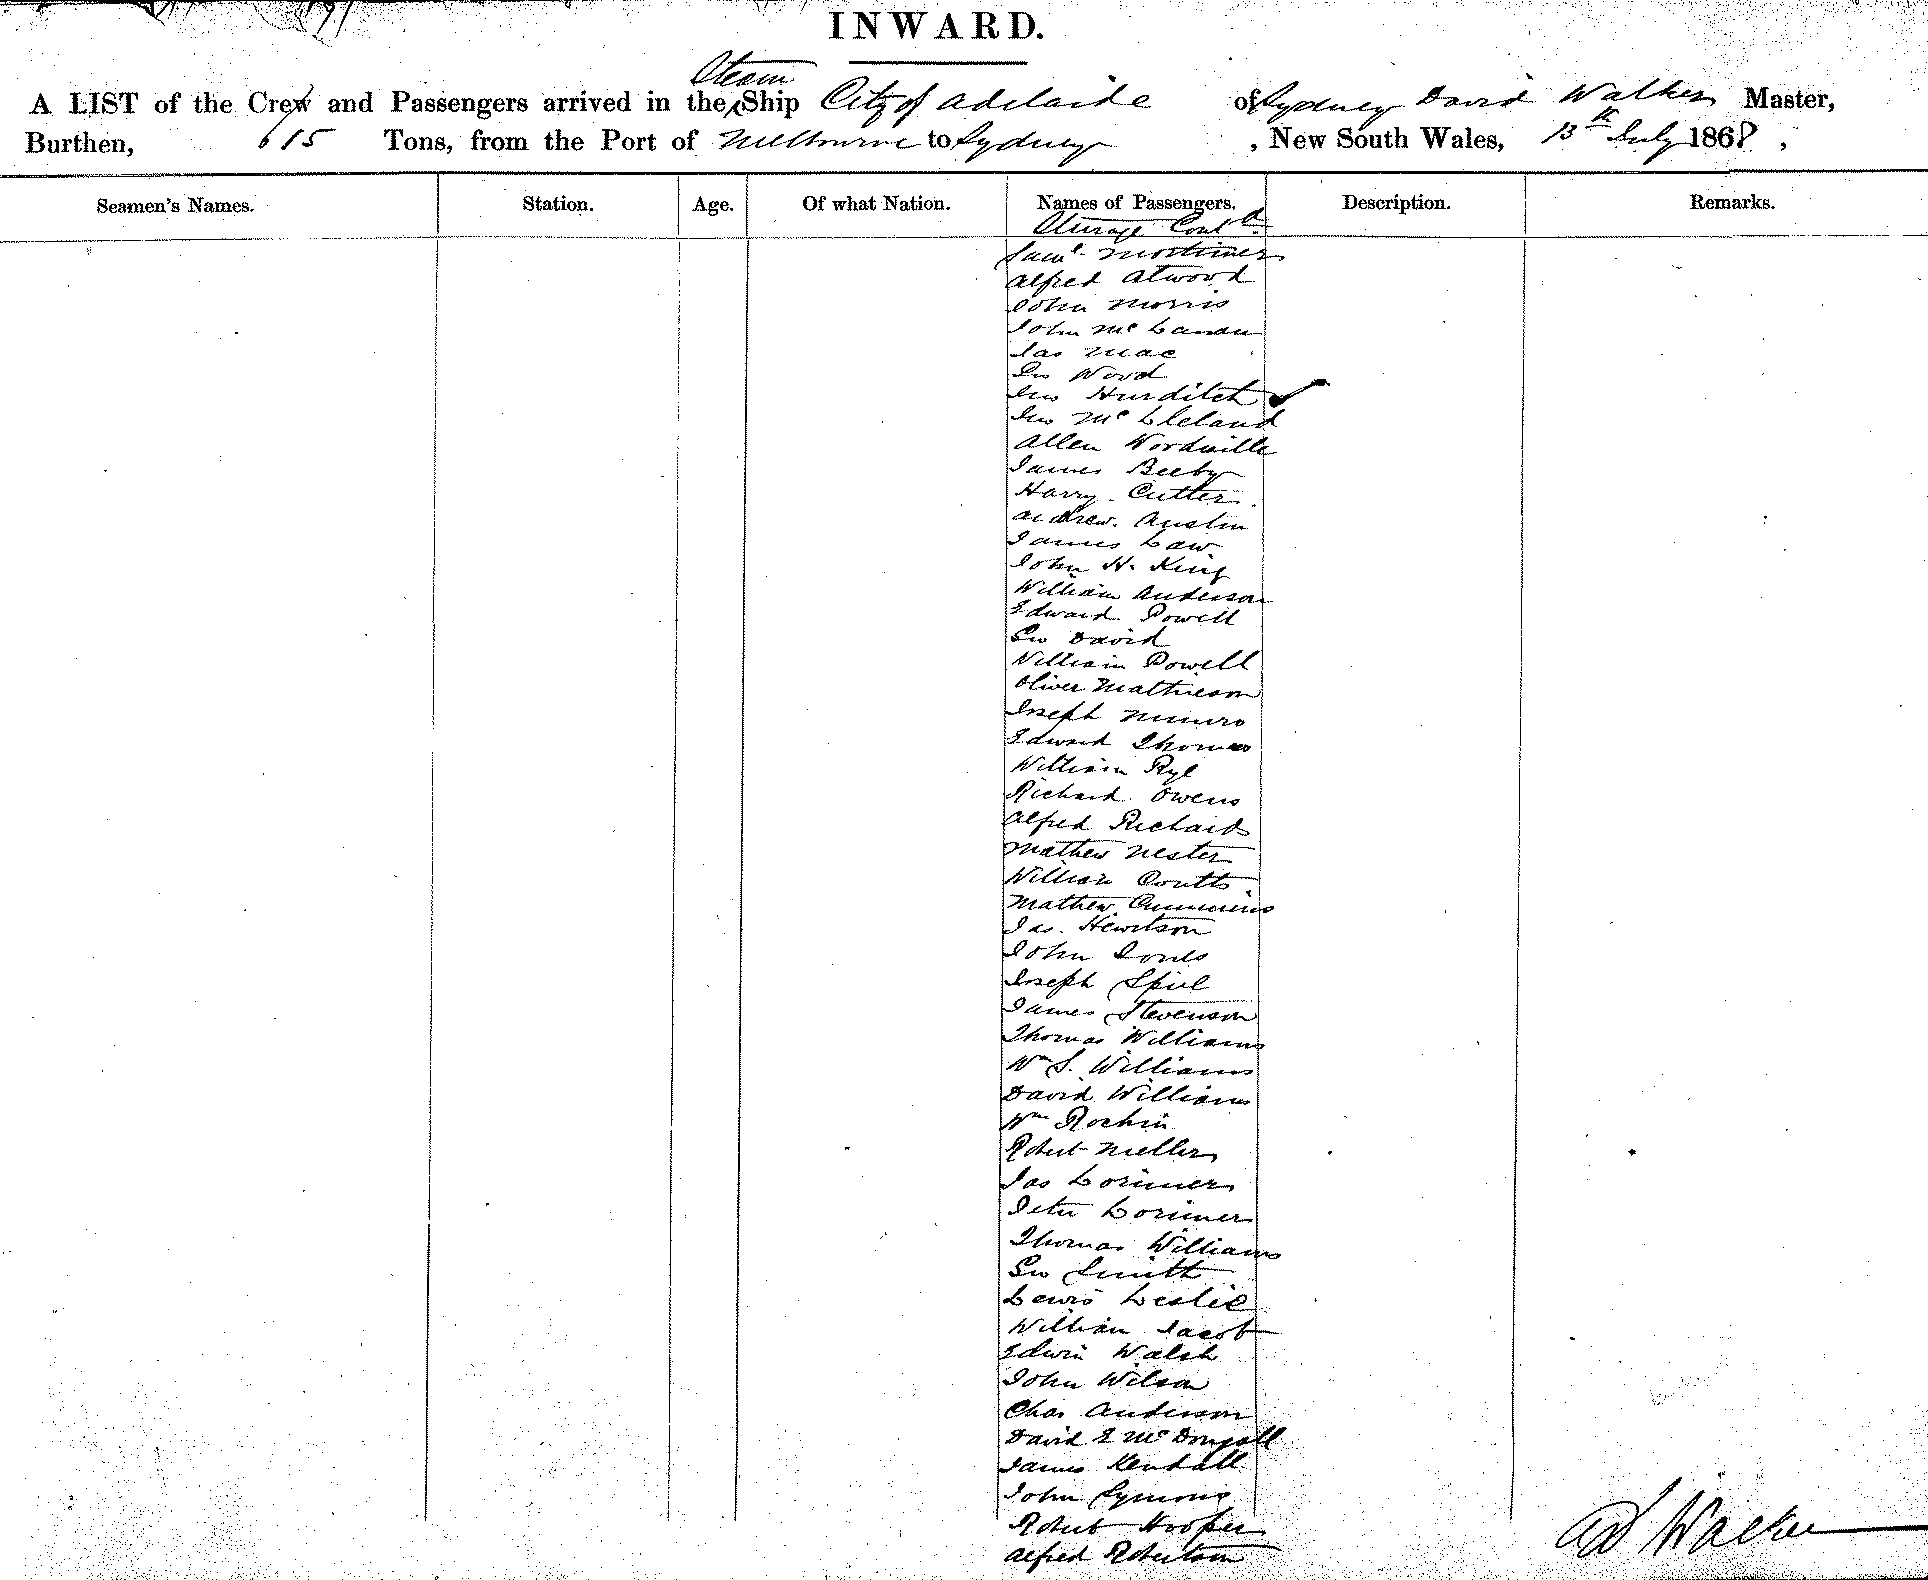 INWARD.
Steam
A LIST of the Crew and Passengers arrived in the Ship City of Adelaide of Sydney David Walker Master,
Burthen, 615 Tons, from the Port of Melbourne to Sydney, New South Wales, 13th July 1868,
Seamen's Names. Station. Age. Of what Nation. Names of Passengers. Description. Remarks.
Steerage Contd
Saml Mortimer
Alfred Atwood
John Morris
John Mc
Jas Mac
Jno Wood
Jno Hurditch
Jno McCleland
Allen Woodville
James Beeby
Harry Cutter
Andrew Austin
James Law
John H. King
William Anderson
Edward Powell
Geo David
William Powell
Oliver Mathieson
Joseph Munro
Edward Thomas
William Ryl
Richard Owens
Alfred Richards
Mathew Nester
William Coutts
Mathew Cummins
Jas. Hewitson
John Jones
Joseph Spiel
James Stevenson
Thomas Williams
Wm S. Williams
David Williams
Wm
Robert Miller
Jas Lorimer
Peter Lorimer
Thomas Williams
Geo Smith
Lewis Leslie
William Jacob
Edwin Walsh
John Wilson
Chas Anderson
David E McDougall
James Kendall
John Symons
Robert Hooper
Alfred Robertson
Walker